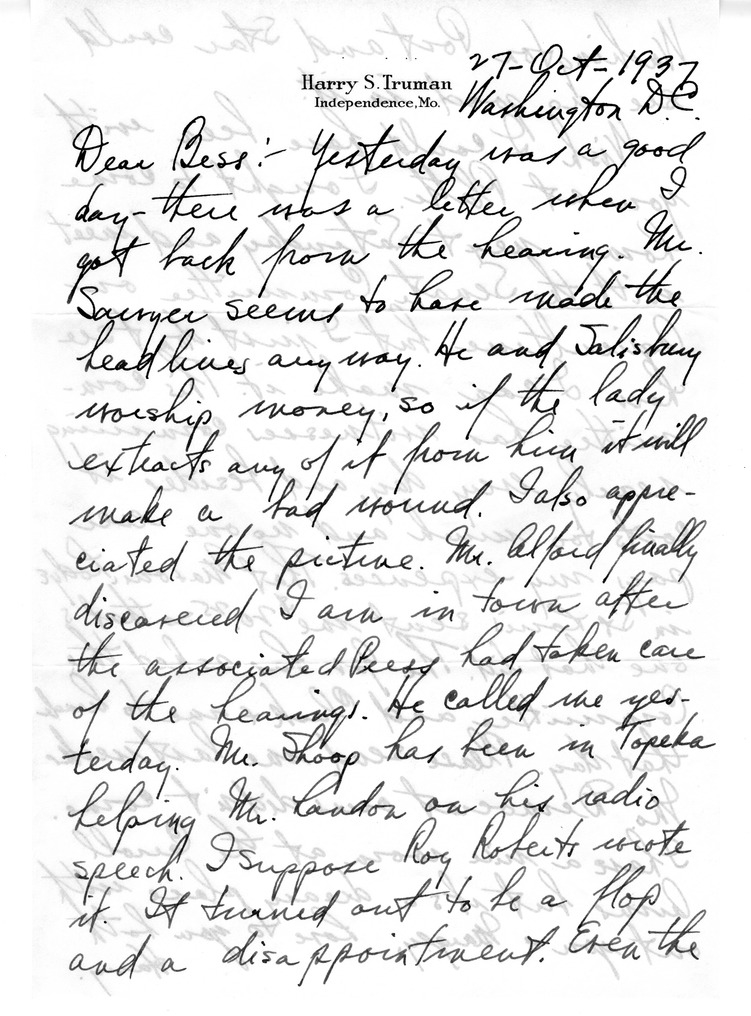 27-Oct-1937
Harry S. Truman
Independence, Mo.
Washington D.C.
Dear Bess:- Yesterday was a good
day- there was a letter when I
got back from the hearing. Mr.
Sawyer seems to have made the
headlines anyway. He and Salisbury
worship money, so if the lady
extracts any of it from him it will
make a bad wound. I also appre-
ciated the picture. Mr. Alford finally
discovered I am in town after
the associated Press had taken care
of the hearings. He called me yes-
terday. Mr. Shoop has been in Topeka
helping Mr. Landon on his radio
speech. I suppose Roy Roberts wrote
it. It turned out to be a flop
and a disappointment. Even the